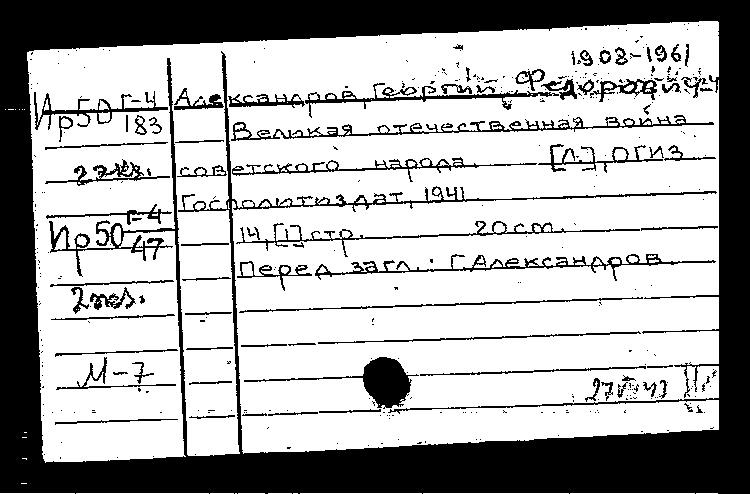 1908-1961
Ир50 Г-4/183 Александров, Георгий Федорович
Великая отечественная война
2 экз. советского народа. [Л.], ОГИЗ
Госполитиздат, 1941
Ир50 Г-4/47 14, [1] стр. 20 cm.
Перед загл.: Г. Александров.
2 экз.
М-7